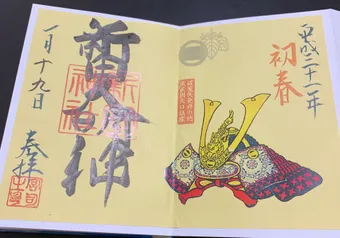 平成三十一年
初春
新田神社
新田
神社
奉拝
一月十九日